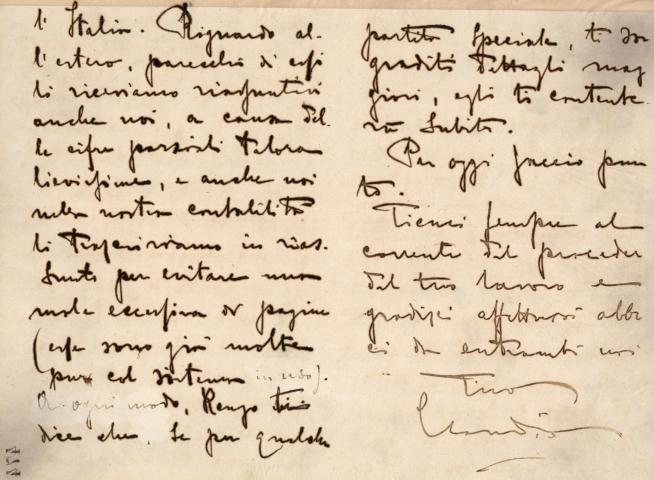 l'Italia. Riguardo al-
l'estero, parecchi di essi
li riceviamo riassuntivi
anche noi, a causa del-
le cifre parziali talora
lievissime, e anche noi
nella nostra contabilità
li trascriviamo in rias-
sunto per evitare una
mole eccessiva di pagine
(esse sono già molte
pur col sistema in uso).
A ogni modo, Renzo ti
dice che, se per qualche
partita speciale, ti son
graditi dettagli mag
giori, egli ti contente-
rà subito.
Per oggi faccio pun
to.
Tienci sempre al
corrente del proceder
del tuo lavoro e
gradisci affettuosi abbr
ci da entrambi noi
Tuo
Claudio